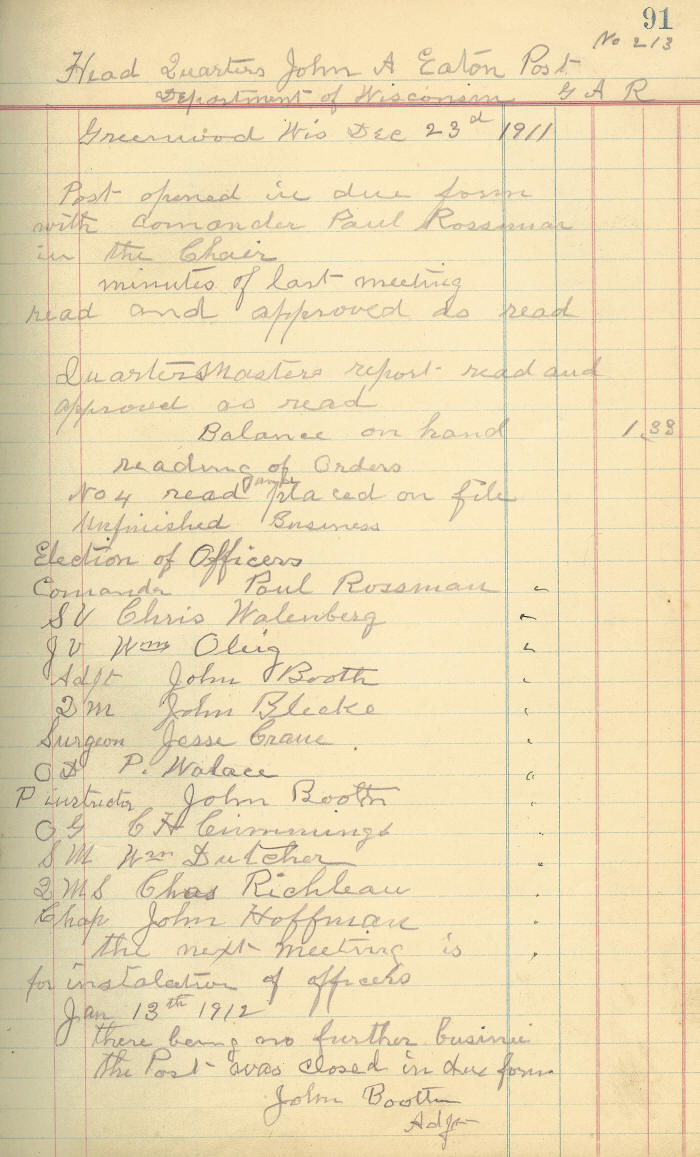 91
No 213
Head Quarters John A Eaton Post
Department of Wisconsin G A R
Greenwood Wis Dec 23d 1911
Post opened in due form
with Comander Paul Rossman
in the Chair
minutes of last meeting
read and approved as read
QuartersMasters report read and
approved as read
Balance on hand 1.33
reading of Orders
No 4 read and placed on file
Unfinished Business
Election of Officers
Comander Paul Rossman "
S V Chris Walenberg "
J V Wm Oleig "
Adjt John Booth "
Q M John Bleeke "
Surgeon Jesse Crane "
O D P. Walace "
P instructor John Booth "
O G C H Cummings "
S M Wm Dutcher "
Q M S Chas Richleau "
Chap John Hoffman "
the next meeting is "
for instalation of officers
Jan 13th 1912
there being no further busines
the Post was closed in due form
John Booth
Adjt